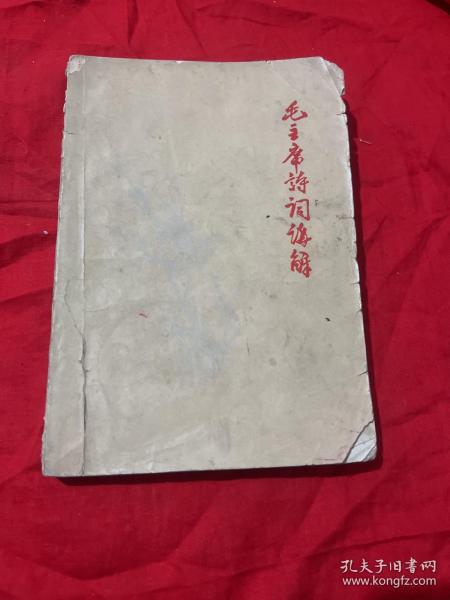 毛主席詩詞講解
孔夫子旧书网
www.kongfz.com